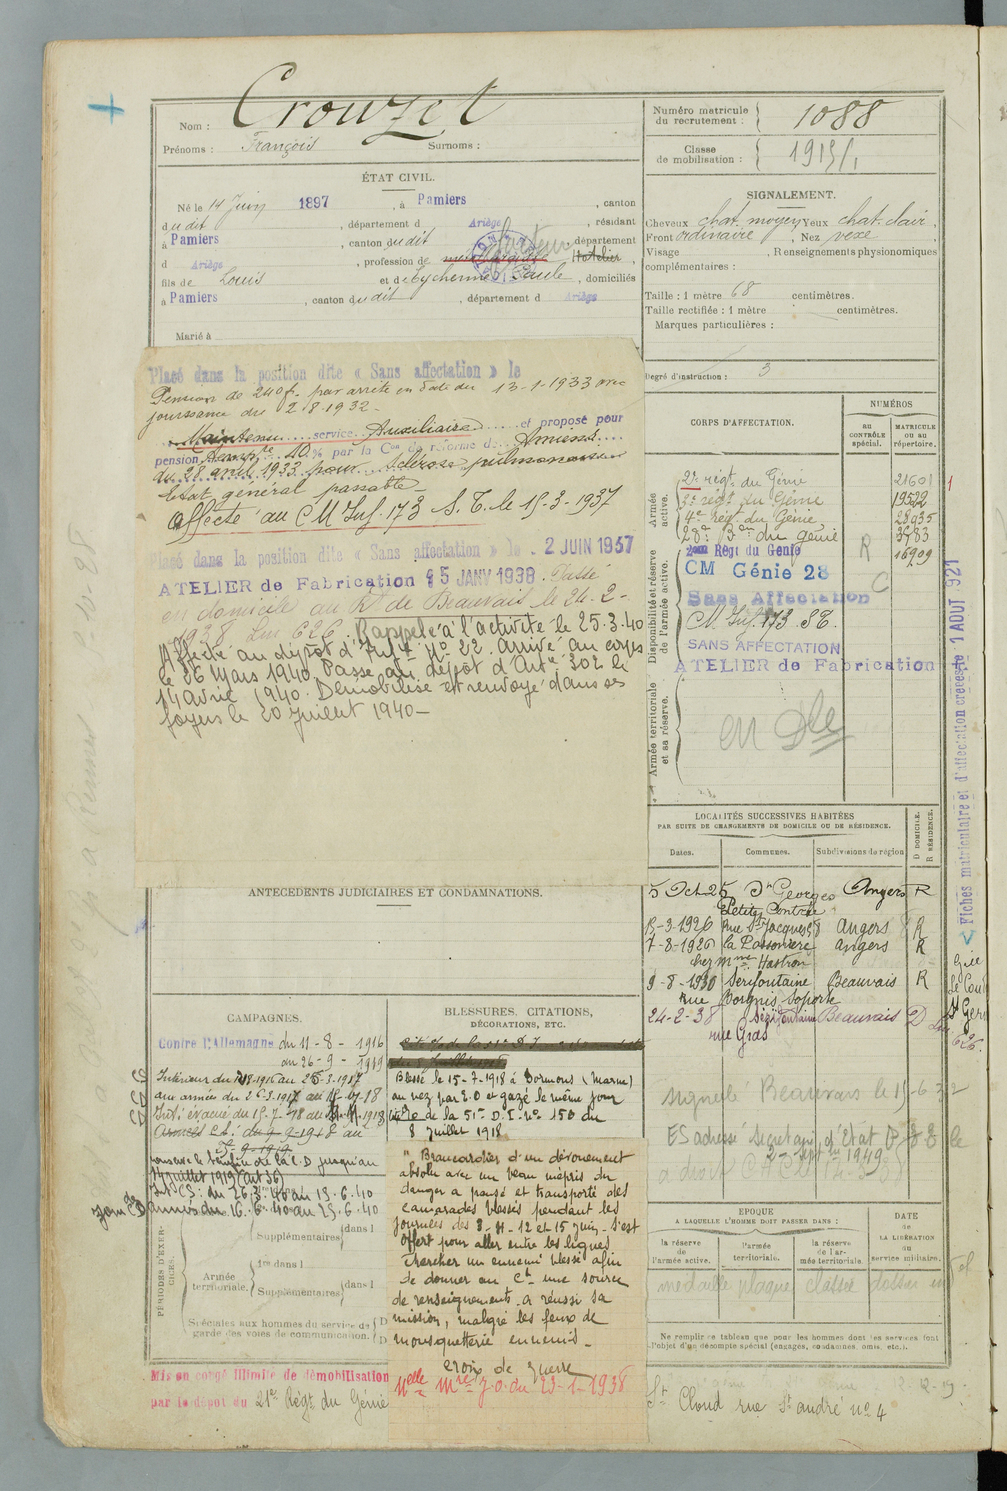 Nom : Crouzet
Prénoms : François Surnoms :
Numéro matricule du recrutement : 1088
Classe de mobilisation :
ÉTAT CIVIL.
Né le 14 Juin 1897, à Pamiers, canton
dudit, département d Ariège, résidant
à Pamiers, canton dudit, département
d Ariège, profession de facteur
fils de Louis et de Eychenne Paule, domiciliés
à Pamiers, canton dudit, département d Ariège
Marié à
SIGNALEMENT.
Cheveux chat. moyen Yeux chat. clair,
Front ordinaire, Nez vexe
Visage , Renseignements physionomiques
complémentaires :
Taille : 1 mètre 68 centimètres.
Taille rectifiée : 1 mètre centimètres.
Marques particulières :
Degré d'instruction : 3
Placé dans la position dite « Sans affectation » le
Pension de 240 f. par arrêté en date du 13-1-1933 avec
jouissance du 2-8-1932-
Maintenu service Auxiliaire et proposé pour
pension Temp^re 10 % par la C^on de réforme d Amiens
du 28 avril 1933 pour Sclérose pulmonaire
Etat général passable-
Affecté au C M Inf. 173 S. T. le 15-3-1937
Placé dans la position dite « Sans affectation » le 2 JUIN 1937
ATELIER de Fabrication 15 JANV 1938. Passé
en domicile au Rt de Beauvais le 24-2-
1938 Lm 626. Rappelé à l'activité le 25.3.40
Affecté au dépôt d'Inf^ie n° 22. arrivé au corps
le 26 Mars 1940. Passé au dépôt d'Art^ie 302 le
14 avril 1940. Démobilisé et renvoyé dans ses
foyers le 20 Juillet 1940-
CORPS D'AFFECTATION.
NUMÉROS
au CONTRÔLE spécial.
MATRICULE ou au répertoire.
Armée active.
2e régt. du Génie 21601
3e régt du Génie 19522
4e régt. du Génie 28935
28e Bon du génie 3983
Disponibilité et réserve de l'armée active.
2me Régt du Génie R 16909
CM Génie 28
Sans Affectation C
C M Inf. 173 S T.
SANS AFFECTATION
ATELIER de Fabrication
Armée territoriale et sa réserve.
en Dle
Fiches matriculaire et d'affectation créées le 1 AOUT 921
LOCALITÉS SUCCESSIVES HABITÉES
PAR SUITE DE CHANGEMENTS DE DOMICILE OU DE RÉSIDENCE.
Dates. Communes. Subdivisions de région D DOMICILE. R RÉSIDENCE.
5 Oct 25 St Georges Angers R
15-3-1926 Rue St Jacques 58 Angers R
7-8-1926 la Possonière Angers R
chez Mme Hastron
9-8-1930 Serifontaine Beauvais R
rue Borgnis Desporte
24-2-38 Sérifontaine Beauvais D
rue Gras
ANTÉCÉDENTS JUDICIAIRES ET CONDAMNATIONS.
CAMPAGNES.
Contre l'Allemagne du 11-8-1916
au 26-9-1919
Intérieur du 11-8-1916 au 25-3-1917
aux armées du 26-3-1917 au 15-7-18
Int. évacué du 15-7-18 au
Armées
14 Juillet 1919 (art 36)
Int CS : du 26.3.40 au 15.6.40
armées du 16.6.40 au 25.6.40
BLESSURES, CITATIONS, DÉCORATIONS, ETC.
Blessé le 15-7-1918 à Dormans (Marne)
au nez par E.O et gazé le même jour
Cité O de la 51e D.I. n° 150 du
8 Juillet 1918
" Brancardier d'un dévouement
absolu avec un beau mépris du
danger a pansé et transporté des
camarades blessés pendant les
journées des 8-11-12 et 15 juin. s'est
offert pour aller entre les lignes
chercher un ennemi blessé afin
de donner au Ct une source
de renseignements. a réussi sa
mission, malgré les feux de
mousquetterie ennemis-
Croix de Guerre
Mlle Mre J.O. du 23-1-1938
PÉRIODES D'EXERCICES.
Supplémentaires dans l
Armée territoriale. 1re dans l
Supplémentaires dans l
Spéciales aux hommes du service de
garde des voies de communication.
Mis en congé illimité de démobilisation
par le dépôt du 21e Régt. du Génie
signalé Beauvais le 15-6-32
ES adressé Secret. gén. d'Etat
ÉPOQUE
A LAQUELLE L'HOMME DOIT PASSER DANS :
la réserve de l'armée active.
l'armée territoriale.
la réserve de l'armée territoriale.
DATE DE LA LIBÉRATION du service militaire.
médaille plaque classée dossier
Ne remplir ce tableau que pour les hommes dont les services font
l'objet d'un décompte spécial (engagés, condamnés, omis, etc.).
St Cloud rue St andré n° 4